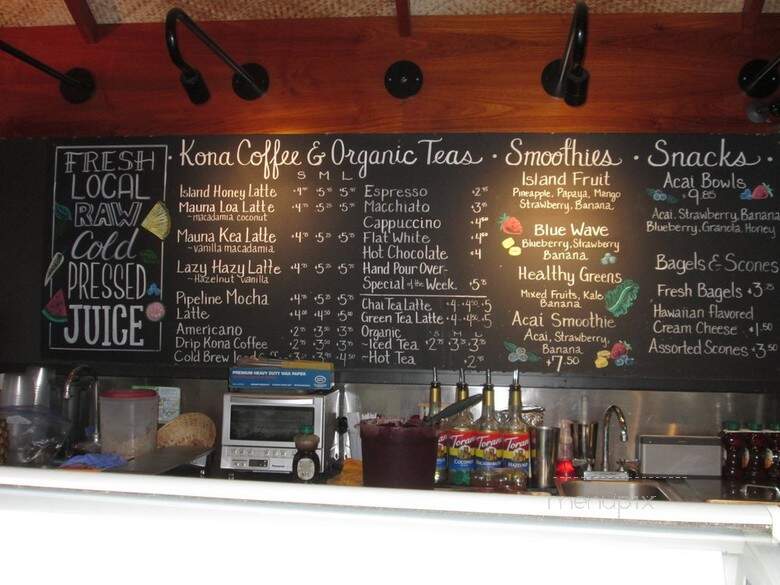 FRESH
LOCAL
RAW
Cold
PRESSED
JUICE
Kona Coffee & Organic Teas
S M L
Island Honey Latte
Mauna Loa Latte
~macadamia coconut
Mauna Kea Latte
~vanilla macadamia
Lazy Hazy Latte
~Hazelnut vanilla
Pipeline Mocha
Latte
Americano
Drip Kona Coffee
Cold Brew
Espresso
Macchiato
Cappuccino
Flat White
Hot Chocolate +4
Hand Pour Over-
Special of the Week
Chai Tea Latte
Green Tea Latte
Organic
~Iced Tea
~Hot Tea
Smoothies
Island Fruit
Pineapple, Papaya, Mango
Strawberry, Banana
Blue Wave
Blueberry, Strawberry
Banana
Healthy Greens
Mixed Fruits, Kale
Banana
Acai Smoothie
Acai, Strawberry,
Banana
+7.50
Snacks
Acai Bowls
+9.85
Acai, Strawberry, Banana
Blueberry, Granola, Honey
Bagels & Scones
Fresh Bagels
Hawaiian flavored
Cream Cheese +1.50
Assorted Scones +3.50
PREMIUM HEAVY DUTY WAX PAPER
Panasonic
Torani
Torani
Torani
menupix